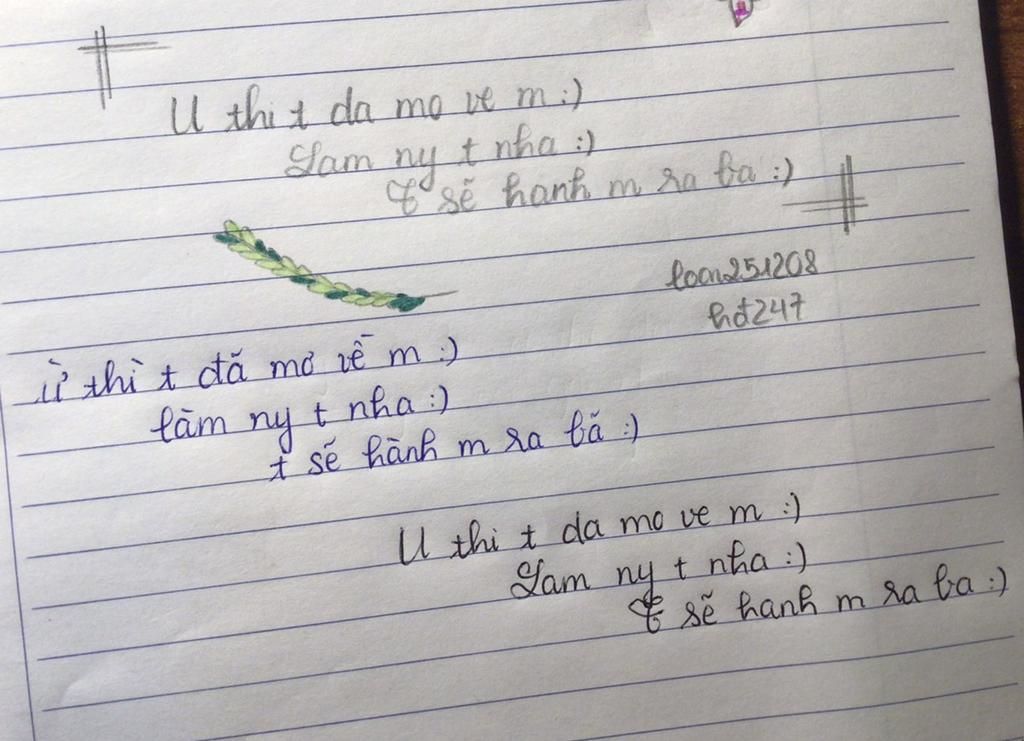 U thi t da mo ve m :)
Lam ny t nha :)
t sẽ hanh m ra ba :)
loan251208
hđ247
ừ thì t đã mơ về m :)
làm ny t nha :)
t sẽ hành m ra bã :)
U thi t da mo ve m :)
Lam ny t nha :)
t sẽ hanh m ra ba :)